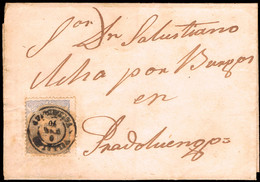 Sor Dn Salustiano
Ulha por Burgos
en
Pradoluengo